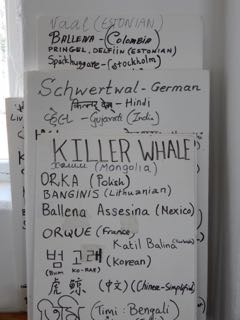 Vaal (ESTONIAN)
BALLENA - (Colombia)
PRINGEL, DELFIIN (ESTONIAN)
Späckhuggare - (Stockholm)
Schwertwal - German
- Hindi
વ્હેલ - Gujarati (India)
KILLER WHALE
(Mongolia)
ORKA (Polish)
BANGINIS (Lithuanian)
Ballena Assesina (Mexico)
ORQUE (France)
Katil Balina (Turkish)
범 고래 (Korean)
(Bum KO-RAE)
虎 鲸 (中文) (Chinese-Simplified)
তিমি (Timi: Bengali)